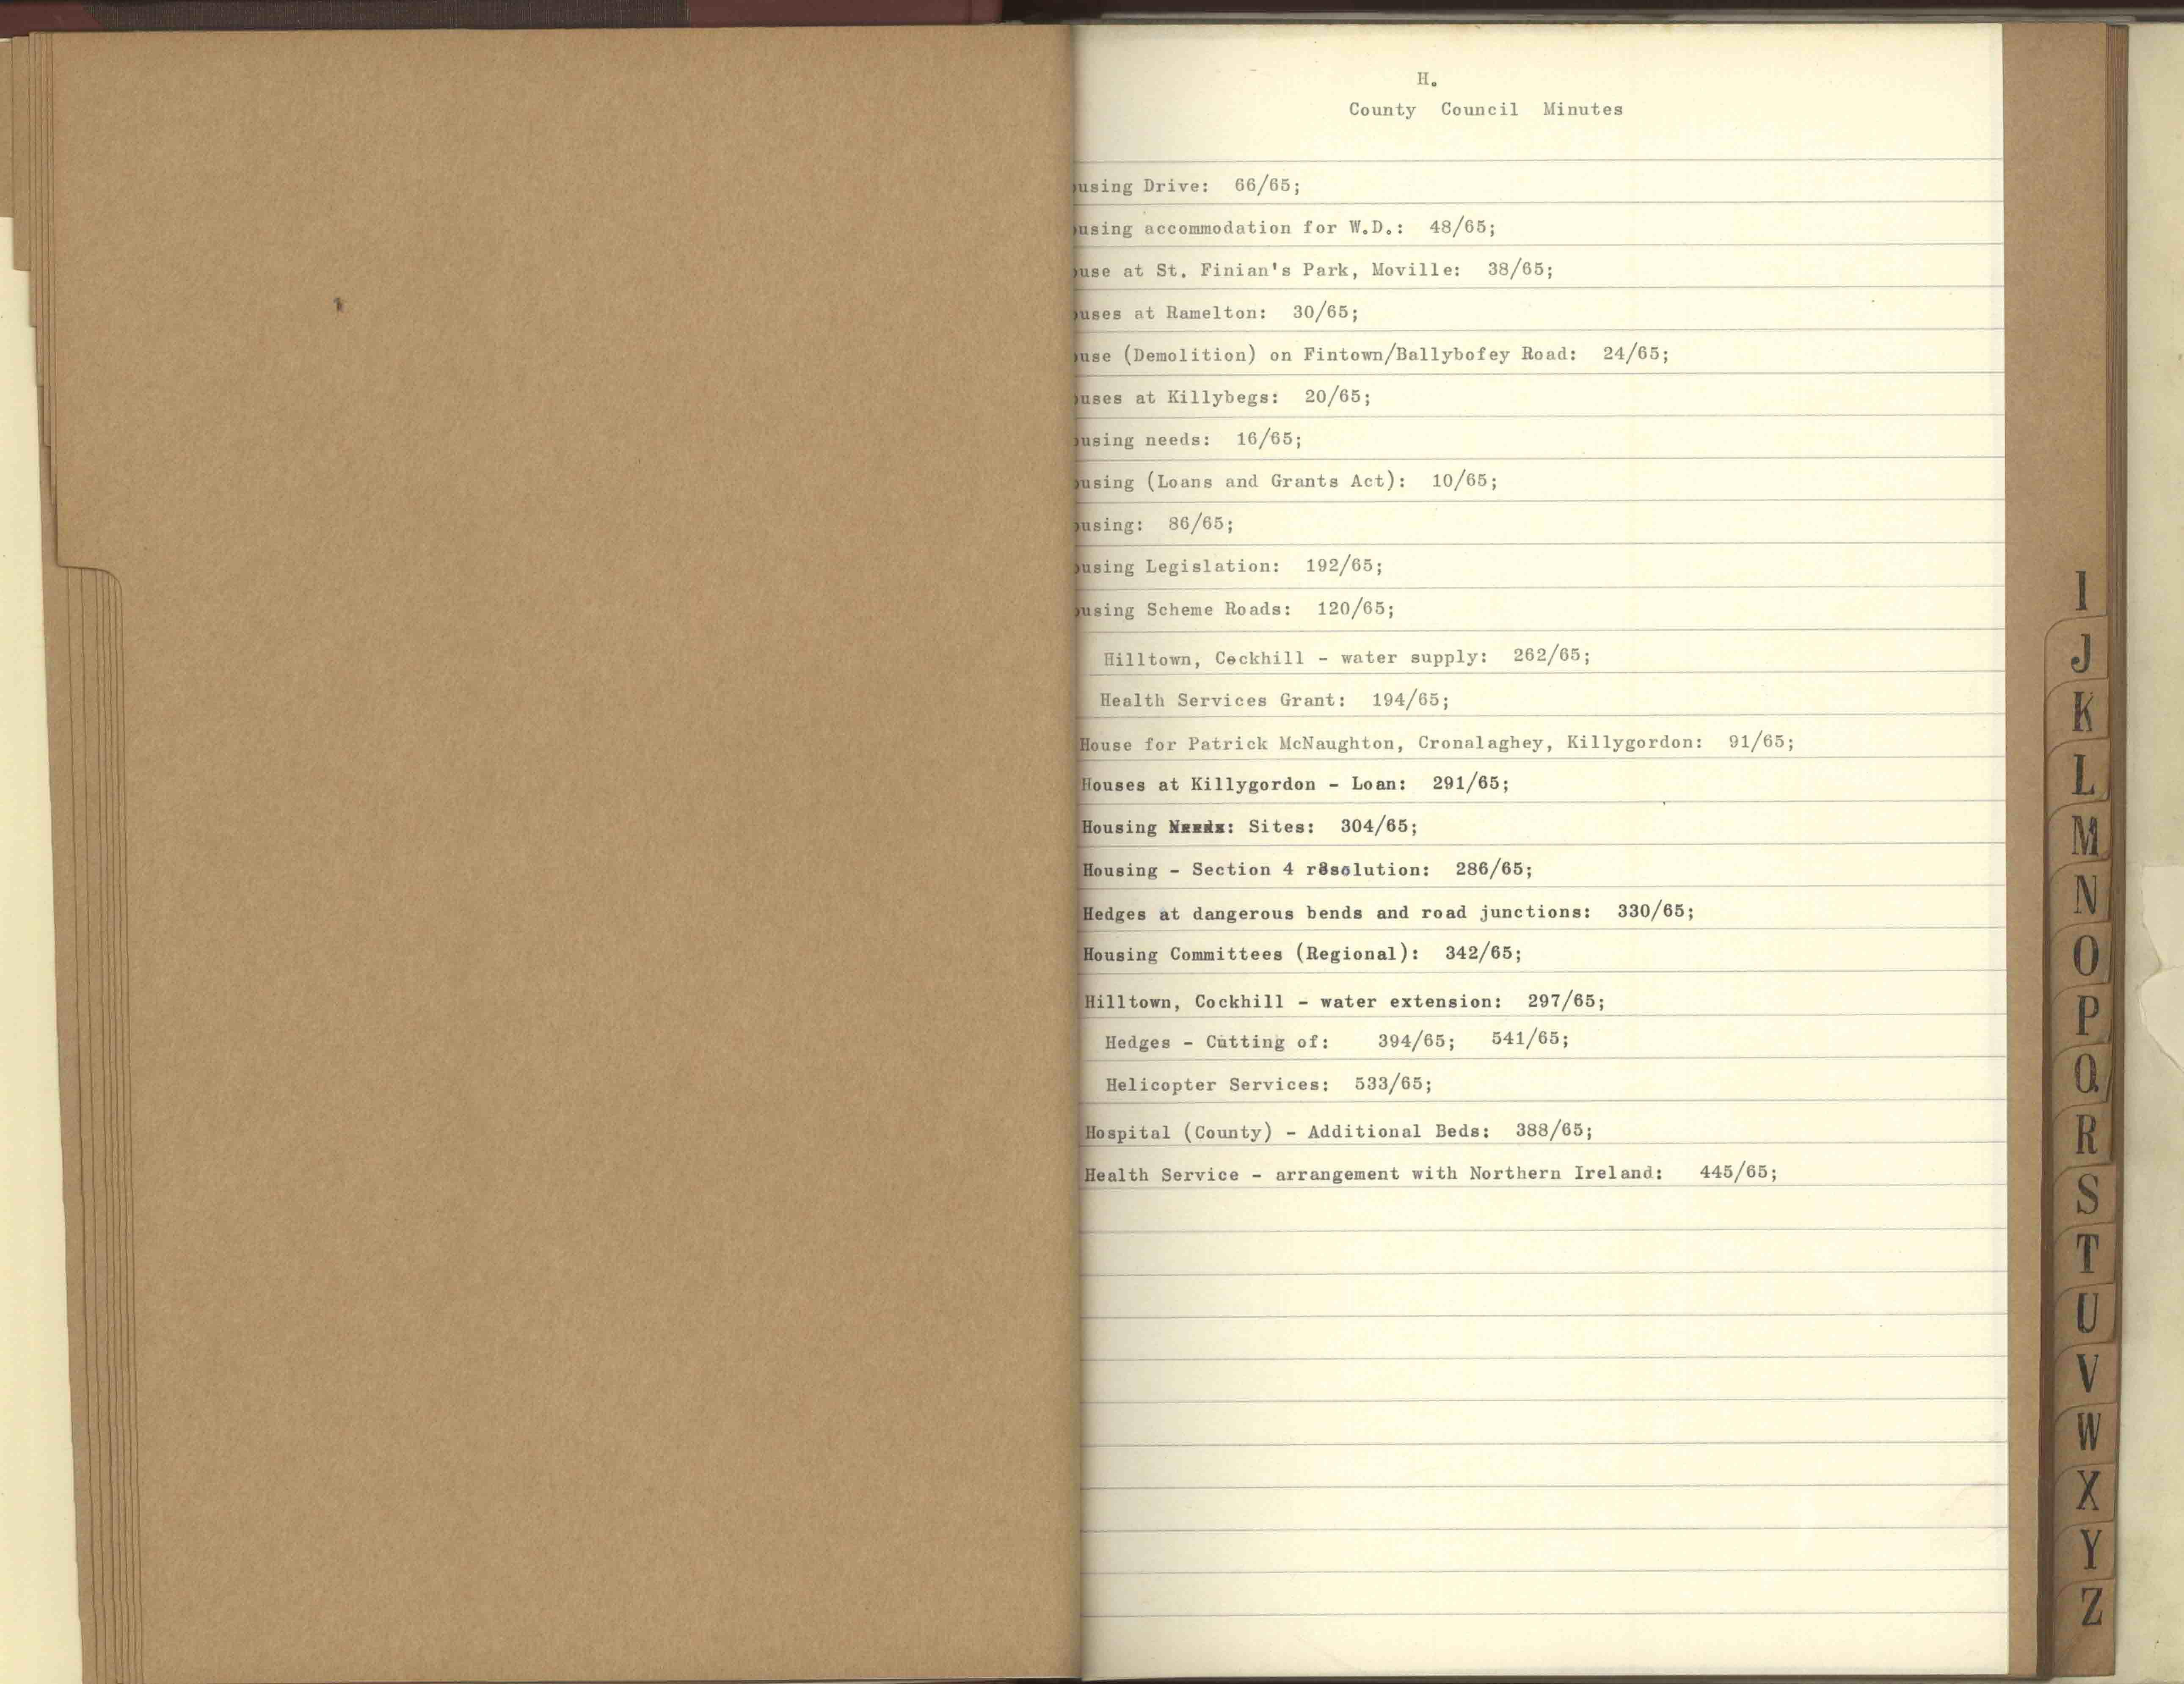 H.
County Council Minutes
using Drive: 66/65;
using accommodation for W.D.: 48/65;
use at St. Finian's Park, Moville: 38/65;
uses at Ramelton: 30/65;
use (Demolition) on Fintown/Ballybofey Road: 24/65;
uses at Killybegs: 20/65;
using needs: 16/65;
using (Loans and Grants Act): 10/65;
using: 86/65;
using Legislation: 192/65;
using Scheme Roads: 120/65;
Hilltown, Cockhill - water supply: 262/65;
Health Services Grant: 194/65;
House for Patrick McNaughton, Cronalaghey, Killygordon: 91/65;
Houses at Killygordon - Loan: 291/65;
Housing : Sites: 304/65;
Housing - Section 4 resolution: 286/65;
Hedges at dangerous bends and road junctions: 330/65;
Housing Committees (Regional): 342/65;
Hilltown, Cockhill - water extension: 297/65;
Hedges - Cutting of: 394/65; 541/65;
Helicopter Services: 533/65;
Hospital (County) - Additional Beds: 388/65;
Health Service - arrangement with Northern Ireland: 445/65;
I
J
K
L
M
N
O
P
Q
R
S
T
U
V
W
X
Y
Z